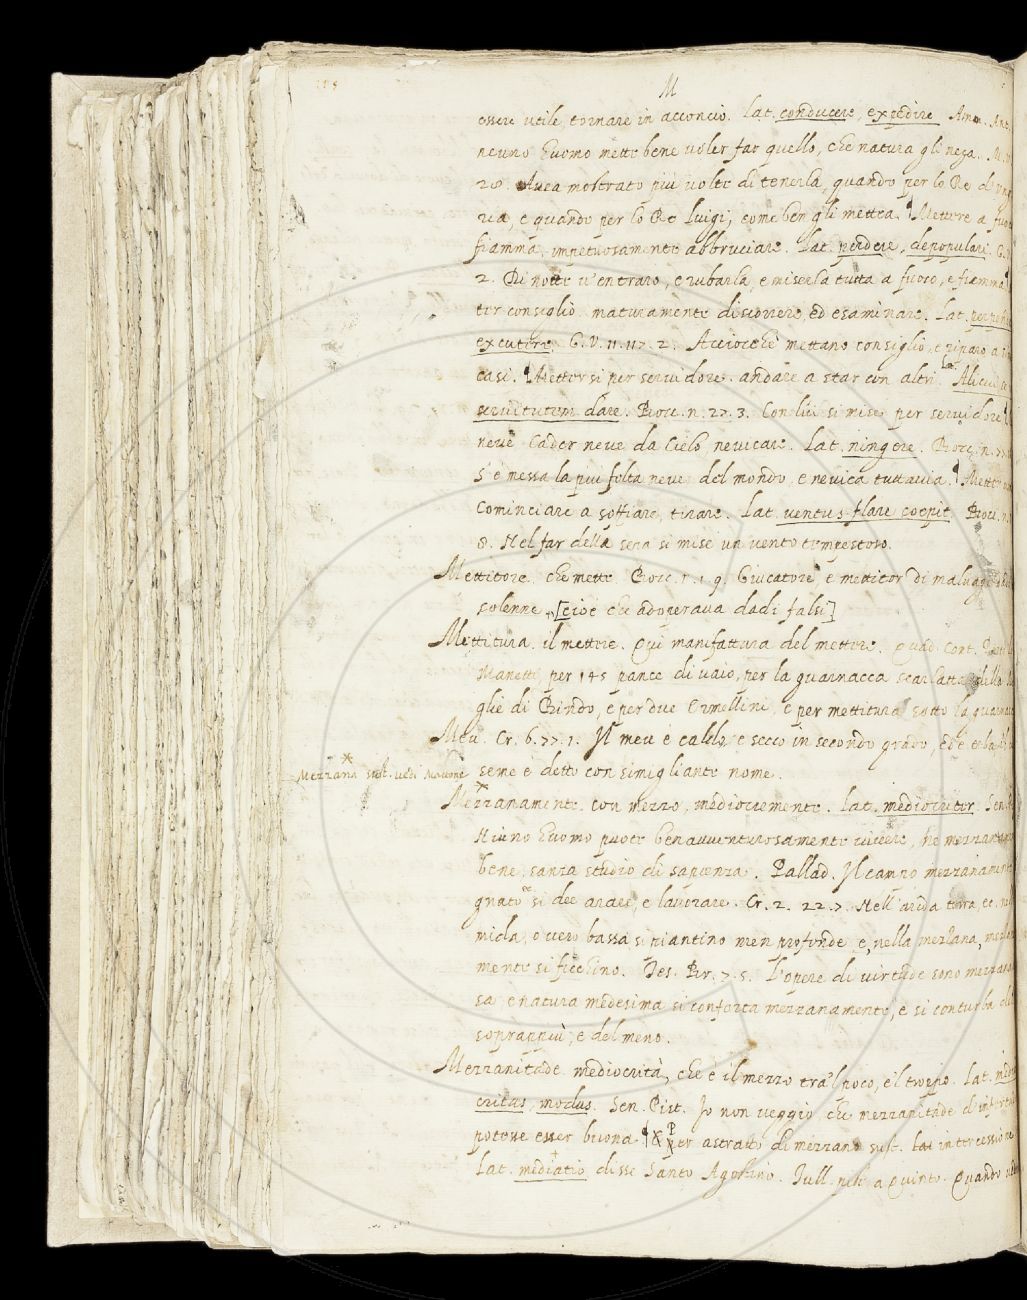 M
essere utile, tornare in acconcio. Lat. conducere, expedire Amm. Ant.
neuno huomo mette bene voler far quello, che natura gli nega. M.
28. Avea mostrato più volte di tenerla, quando per lo Re d'
ria, e quando per lo Re Luigi, come ben gli mettea. Mettere a fuoco
fiamma, impetuosamente abbruciare. Lat. perdere, depopulari. G.
2. Di notte v'entraro, e rubarla, e miserla tutta a fuoco, e fiamma
ter consiglio maturamente discorrere, ed esaminare. Lat.
excutere. G. V. 11. 117. 2. Acciocchè mettano consiglio, e riparo a
casi. Mettersi per servidore. andare a star con altri. Lat. Alicui
servitutem dare. Bocc. n. 27. 3. Con lui si mise per servidore
neve Cader neve da Cielo, nevicare. Lat. ningere. Bocc. n. 77
S'è messa la più folta neve del mondo, e nevica tuttavia. Metter
Cominciare a soffiare, tirare. Lat. ventus flare coepit Bocc. n.
8. Nel far della sera si mise un vento tempestoso.
Mettitore. che mette. Bocc. n. 1. 9. Giucatore, e mettitor di malvagi
solenne. [cioè che adoperava dadi falsi]
Mettitura. il mettere. Qui manifattura del mettere. Quad. Cont.
Manetti per 145 pance di vaio, per la guarnacca scarlatta della
glie di Bindo, e per due Ermellini, e per mettitura sotto la guarnacca
Meu. Cr. 6. 77. 1. Il meu è caldo, e secco in secondo grado, ed è erba
* Mezzana sust. vedi
seme è detto con simigliante nome.
* Mezzanamente. con mezzo, mediocremente. Lat. mediocriter. Sen.
Niuno huomo puote benavventurosamente vivere, ne mezzanamente
bene, sanza studio di sapienza. Pallad. Il campo mezzanamente
gnato si dee arare, e lavorare. Cr. 2. 22. 7. Nell'arida terra, ec.
micla, o vero bassa si piantino men profonde e, nella mezzana,
mente si ficchino. Tes. Br. 7. 5. L'opere di virtude sono mezzana
sa e natura medesima si conforta mezzanamente, e si conturba del
soprappiù, e del meno.
Mezzanitade. mediocrità, che è il mezzo tra'l poco, e'l troppo. Lat. medio
critas, modus. Sen. Pist. Io non veggio che mezzanitade d'
potesse esser buona. & per astratto di mezzano sust. Lat. intercessio
Lat. mediatio disse Santo Agostino. Tull. a Quinto. Quando